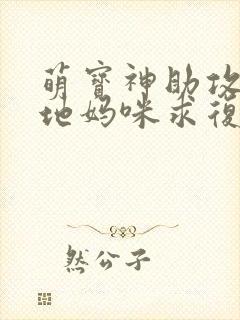 萌寶神助攻
地媽咪求復
然公子